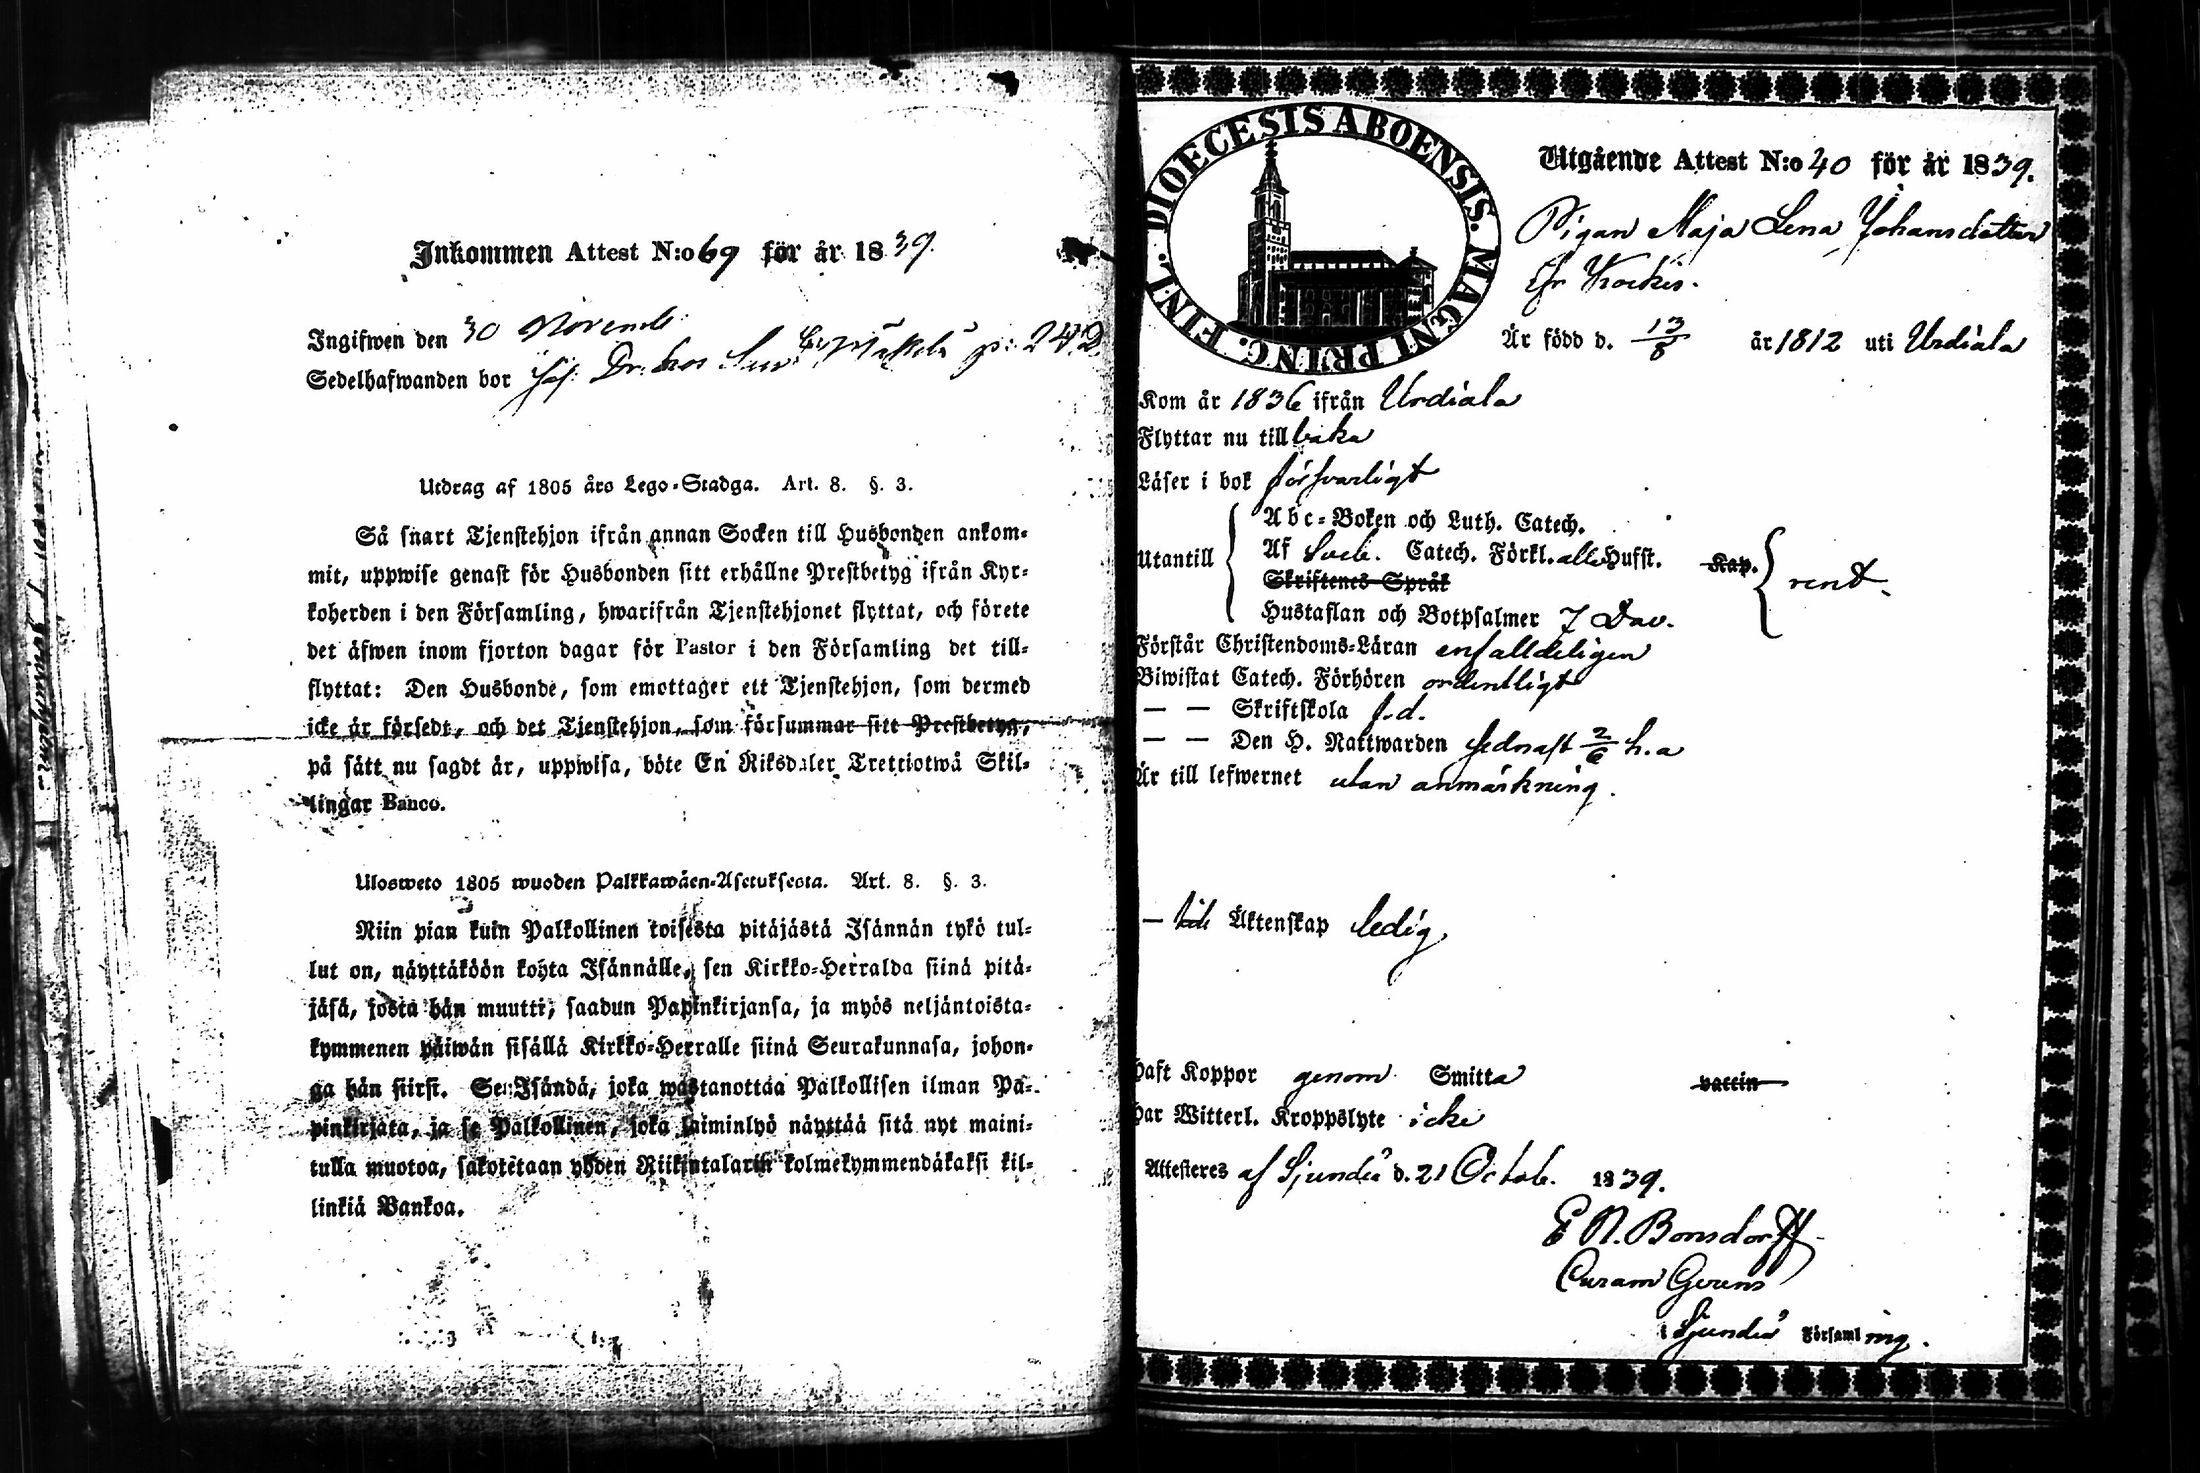 Inkommen Attest N:o 69 för år 1839.
Ingifwen den 30 Novemb:
Sedelhafwanden bor hos Mäkelä p: 242
Utdrag af 1805 års Lego-Stadga. Art. 8. §. 3.
Så snart Tjenstehjon ifrån annan Socken till Husbonden ankom-
mit, uppwise genast för Husbonden sitt erhållne Prestbetyg ifrån Kyr-
koherden i den Församling, hwarifrån Tjenstehjonet flyttat, och förete
det äfwen inom fjorton dagar för Pastor i den Församling det till-
flyttat: Den Husbonde, som emottager ett Tjenstehjon, som dermed
icke är försedt, och det Tjenstehjon, som försummar sitt Prestbetyg,
på sätt nu sagdt är, uppwisa, böte En Riksdaler Trettiotwå Skil-
lingar Banco.
Ulosweto 1805 wuoden Palkkawäen-Asetuksesta. Art. 8. §. 3.
Niin pian kuin Palkollinen toisesta pitäjästä Isännän tykö tul-
lut on, näyttäköön kohta Isännälle, sen Kirkko-Herralda siinä pitä-
jäsä, josta hän muutti, saadun Papinkirjansa, ja myös neljäntoista-
kymmenen päiwän sisällä Kirkko-Herralle siinä Seurakunnasa, johon-
ga hän siirst. Se Isändä, joka wastanottaa Palkollisen ilman Pa-
pinkirjata, ja se Palkollinen, joka laiminlyö näyttää sitä nyt maini-
tulla muotoa, sakotetaan yhden Riikintalarin kolmekymmendäkaksi kil-
linkiä Bankoa.
DIOECESIS ABOENSIS. MAGNI PRINC. FINL.
Utgående Attest N:o 40 för år 1839.
Pigan Maja Lena Johansdotter
fr Krockis.
Är född d. 13/8 år 1812 uti Urdiala
Kom år 1836 ifrån Urdiala
Flyttar nu tillbaka
Läser i bok försvarligt
Abc-Boken och Luth. Catech.
Utantill Af Sveb. Catech. Förkl. alla Hufst. Kap. rent.
Skriftenes Språk
Hustaflan och Botpsalmer 7 Dav.
Förstår Christendoms-Läran enfalldeligen
Biwistat Catech. Förhören ordentligt
— — Skriftskola f.d.
— — Den H. Nattwarden sednast 2/6 h.a
Är till lefwernet utan anmärkning.
— till Äktenskap ledig.
Haft Koppor genom Smitta vaccin
Har Witterl. Kroppslyte icke
Attesteres af Sjundeå d. 21 Octob. 1839.
E N. Bonsdorff
Curam Gerens
i Sjundeå Församling.